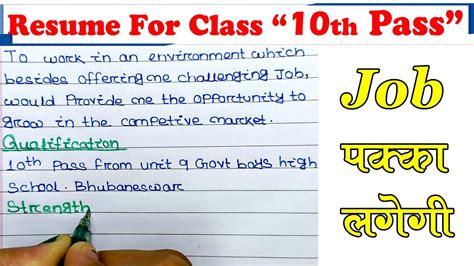 Resume For Class “10th Pass”
To work in an environment which
besides offering me challenging Job,
would Provide me the opportunity to
grow in the competive market.
Qualification
10th Pass from unit 9 Govt boys high
School. Bhubaneswar
Strength
Job
पक्का
लगेगी